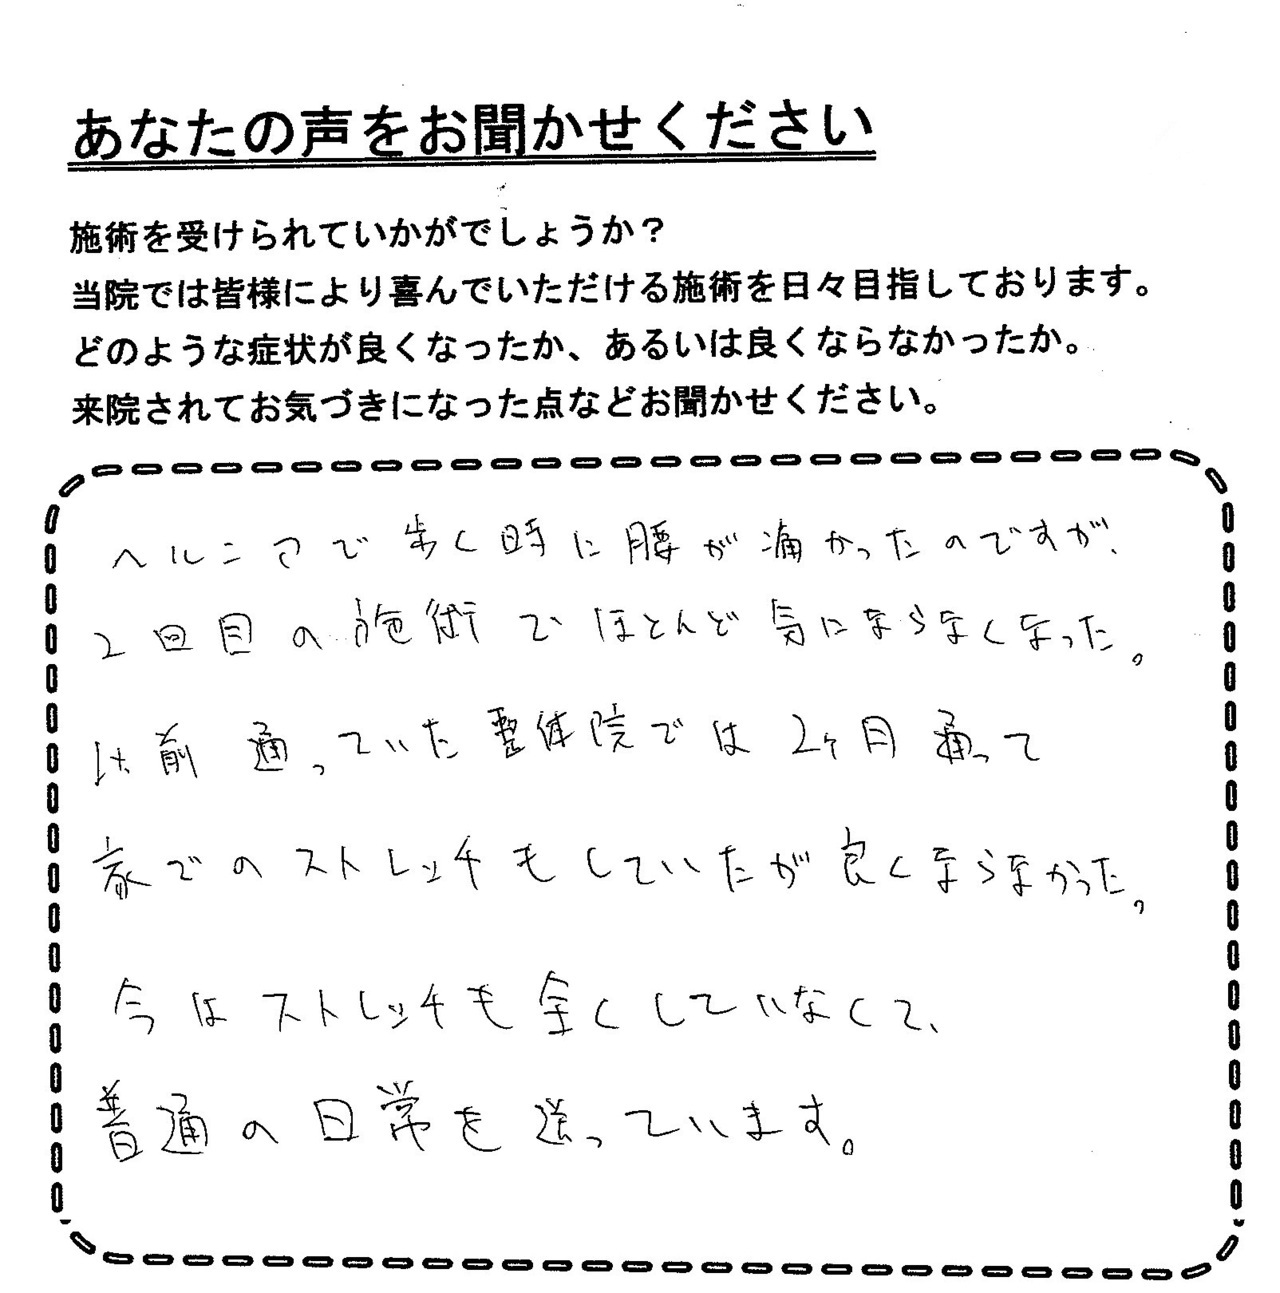 あなたの声をお聞かせください
施術を受けられていかがでしょうか？
当院では皆様により喜んでいただける施術を日々目指しております。
どのような症状が良くなったか、あるいは良くならなかったか。
来院されてお気づきになった点などお聞かせください。
ヘルニアで歩く時に腰が痛かったのですが、
2回目の施術でほとんど気にならなくなった。
以前通っていた整体院では2ヶ月通って
家でのストレッチもしていたが良くならなかった。
今はストレッチも全くしていなくて、
普通の日常を送っています。